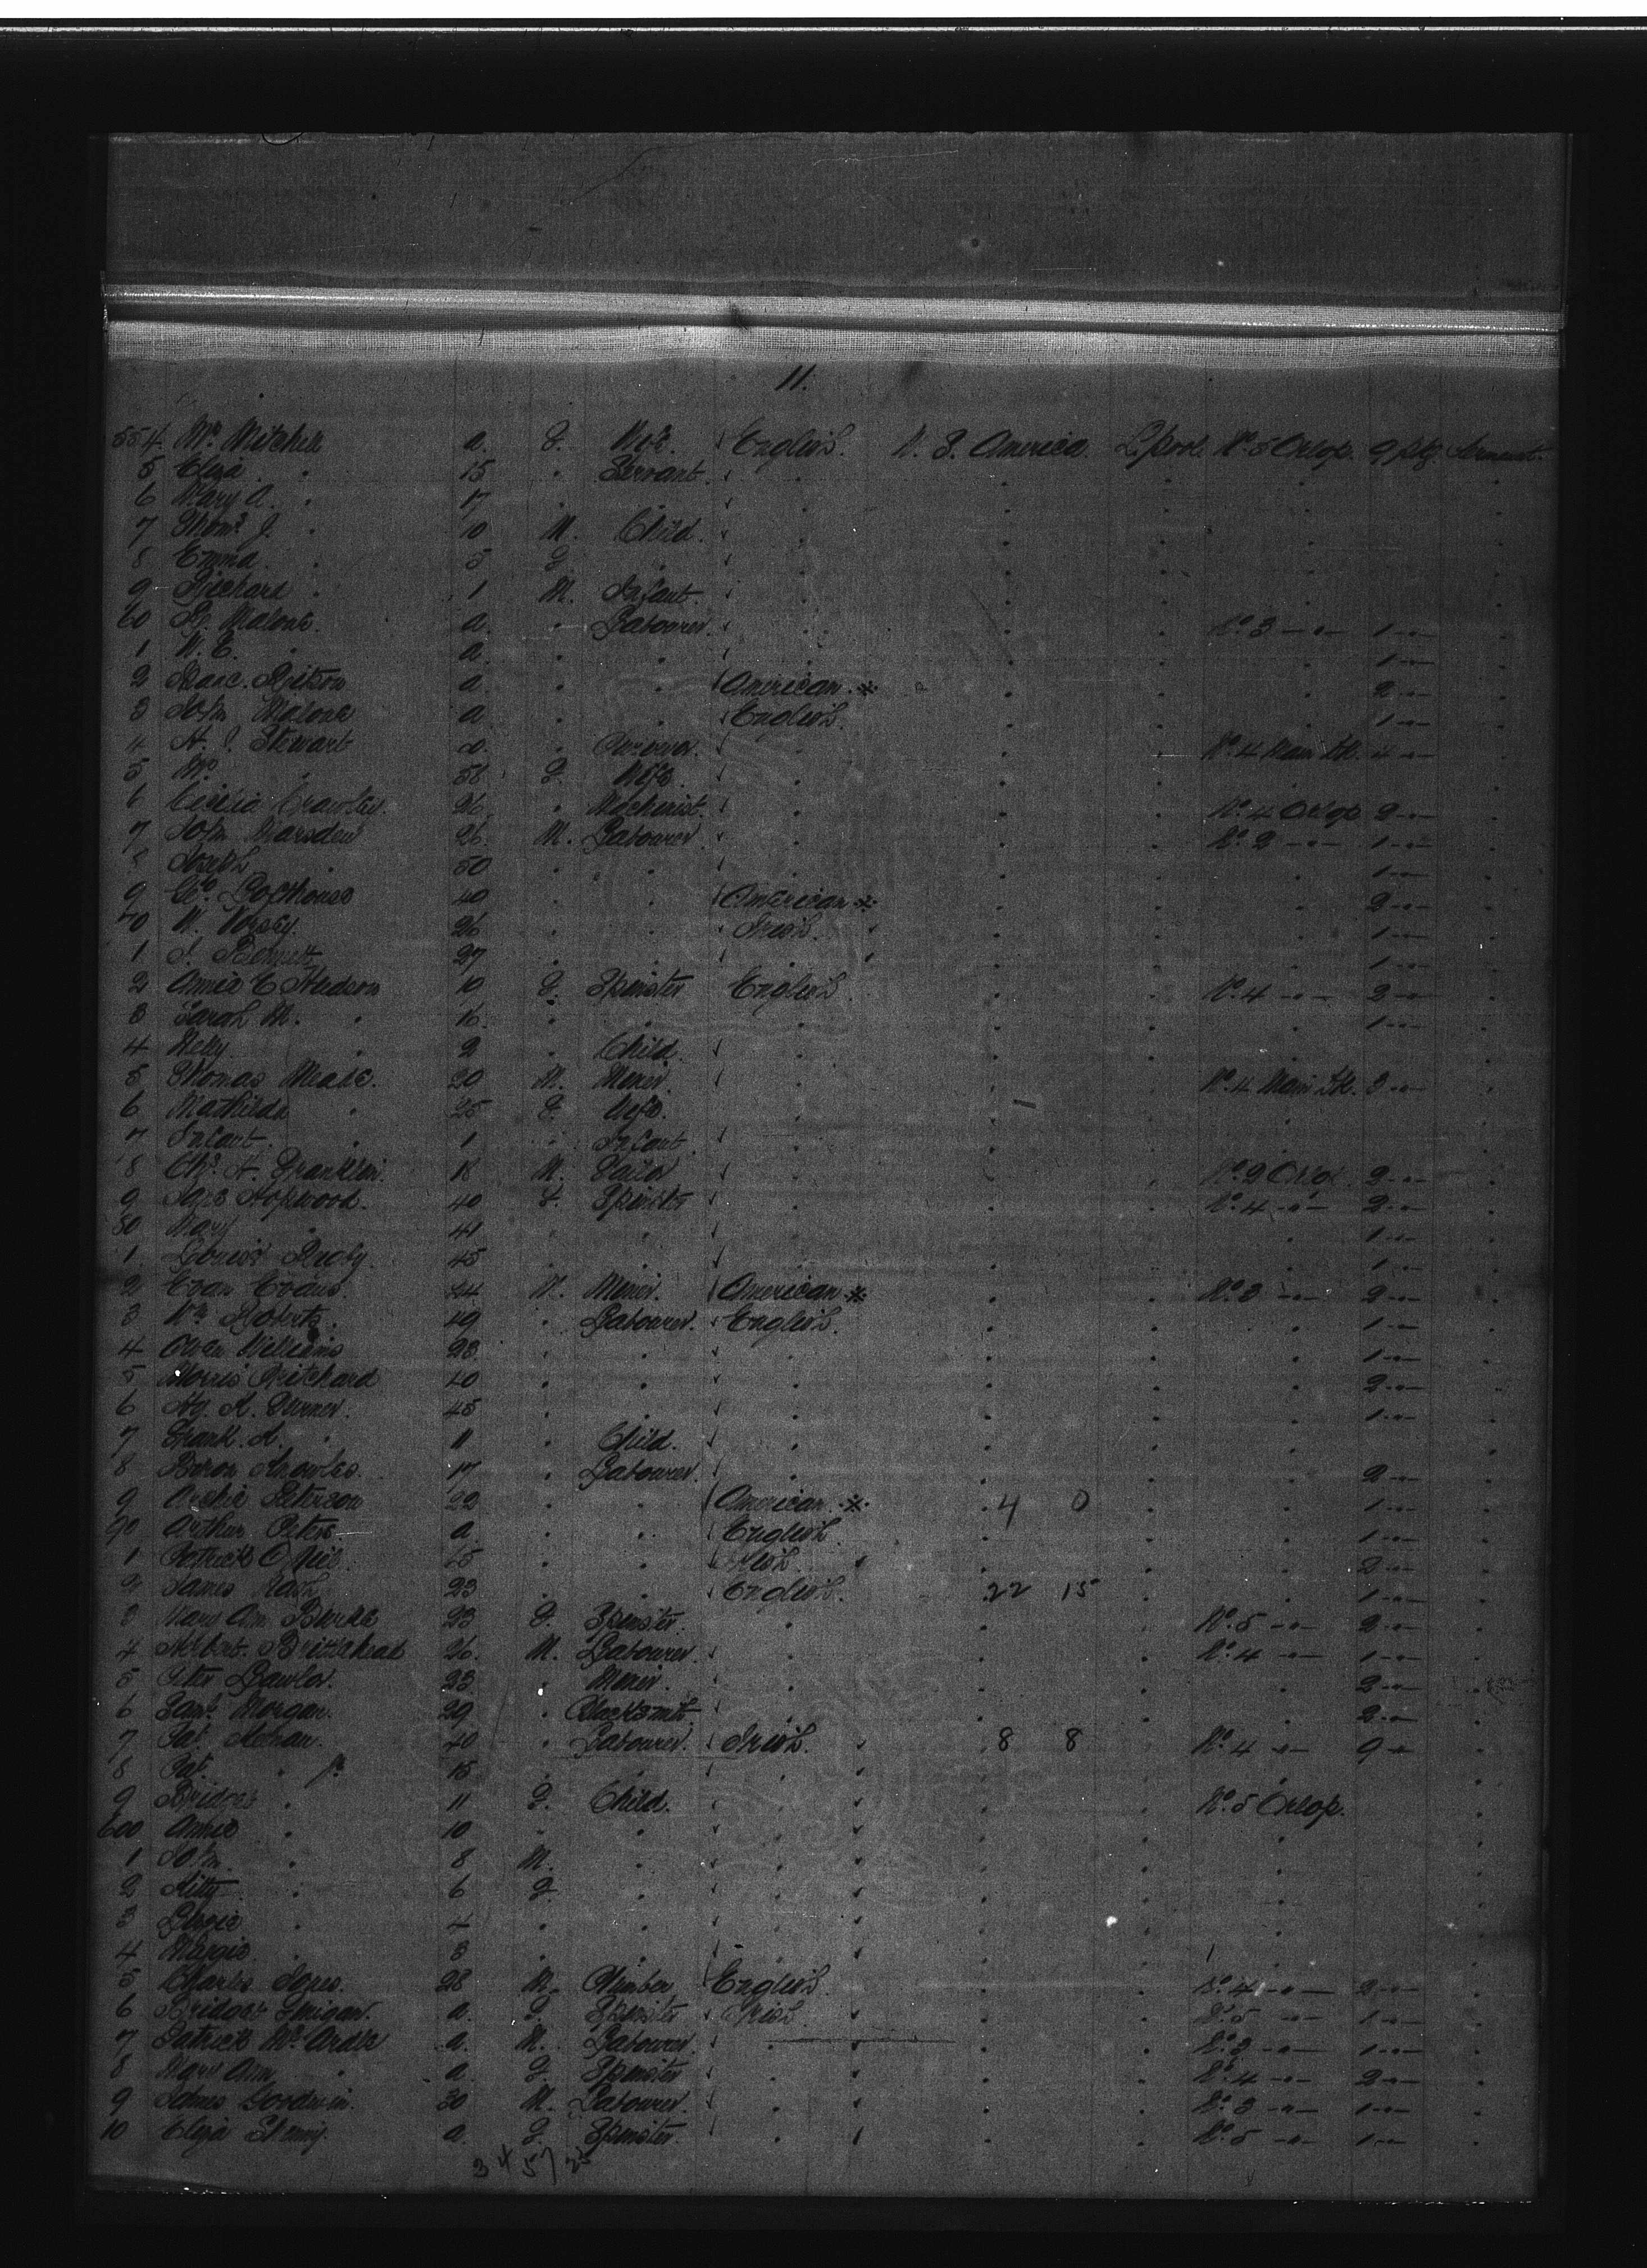 11.
554 Mrs Mitchell a. F. Wife English. U. S. America. L.pool. No. 5 Orlop. 9 pkg. Permanent.
5 Eliza " 15 " Servant
6 Mary A. " 17
7 Thoms J. " 10 M. Child.
8 Emma " 5 F
9 Richard " 1 M. Infant.
60 Malone. a. " Labourer. No. 3 -"- 1 -"-
1 W. E. " a. 1 -"-
2 Isaac a. American 2 -"-
3 John Malone a. English. 1 -"-
4 Stewart a. No. 4 Main Dk. 4 -"-
5 Mrs " 58 F. Wife.
6 Cecilia Crawley. 26 " Machinist. No. 4 Orlop 2 -"-
7 John Marsden 26 M. Labourer No. 2 -"- 1 -"-
8 Joseph " 50 1 -"-
9 Geo. Lofthouse 40 American 2 -"-
70 W. 26 Irish. 1 -"-
1 27 1 -"-
2 Annie E Hudson 10 F. Spinster English No. 4 -"- 2 -"-
3 Sarah M. " 16 1 -"-
4 " 2 " Child.
5 Thomas 20 M. Miner No. 4 Main Dk. 3 -"-
6 Mathilda " 25 F. Wife.
7 Infant. " 1 Infant
8 Chs. H. Franklin. 18 M. No. 2 Orlop. 2 -"-
9 Hopwood. 40 F. Spinster No. 4 -"- 2 -"-
80 Mary " 41 1 -"-
1 45 1 -"-
2 Evan Evans. 24 M. Miner. American No. 3 -"- 2 -"-
3 Wm Roberts. 49 Labourer. English. 1 -"-
4 Owen Williams 23 1 -"-
5 Morris Pritchard 40 2 -"-
6 Hy. A. Turner. 45 1 -"-
7 Frank. A. " 11 " Child.
8 Byron Knowles. 17 " Labourer. 2 -"-
9 Archie Peterson 22 American 4 0 1 -"-
90 Arthur Peters. a. English 1 -"-
1 Patrick O'Neil. Irish 2 -"-
2 James 23 English. 22 15 1 -"-
3 Mary Ann Burke 23 F. Spinster. No. 5 -"- 2 -"-
4 26. M. Labourer No. 4 -"- 1 -"-
5 Peter Lawlor. 23 " Miner. 2 -"-
6 Saml. Morgan. 29 " Blacksmith. 2 -"-
7 Pat. 40 " Labourer. Irish. 8 8 No. 4 -"- 9 -"-
8 Pat. " Jr. 15
9 Bridget " 11 F. Child. No. 5 Orlop.
600 Annie " 10
1 John. " 8 M.
2 Kitty " 6 F.
3 Lizzie " 4
4 Maggie " 3
5 Charles Jones. 28 M. Plumber English. No. 4 -"- 2 -"-
6 Bridget a. F. Spinster Irish. No. 5 -"- 1 -"-
7 Patrick McArdle a. M. Labourer. No. 3 -"- 1 -"-
8 Mary Ann " a. F. Spinster No. 4 -"- 2 -"-
9 James Goodwin. 30 M. Labourer. No. 3 -"- 1 -"-
10 Eliza a. F. Spinster. No. 5 -"- 1 -"-